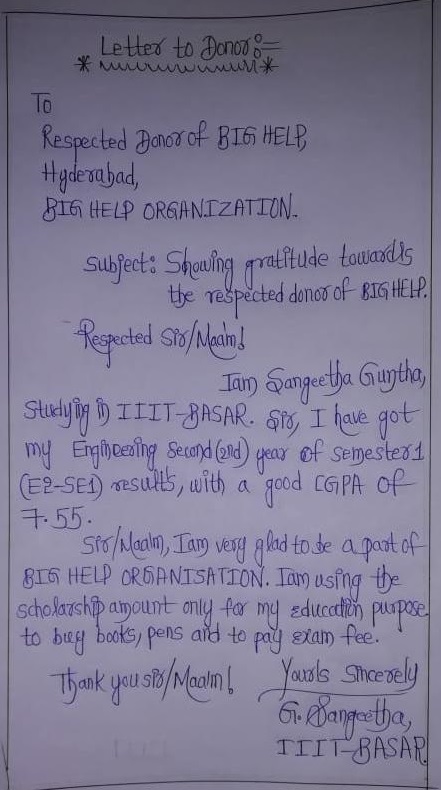 Letter to Donor:=
To
Respected Donor of BIG HELP,
Hyderabad,
BIG HELP ORGANIZATION.
Subject: Showing gratitude towards
the respected donor of BIG HELP.
Respected Sir/Maam!
Iam Sangeetha Guntha,
Studying in IIIT-BASAR. Sir, I have got
my Engineering Second (2nd) year of semester1
(E2-SE1) results, with a good CGPA of
7.55.
Sir/Maam, Iam very glad to be a part of
BIG HELP ORGANISATION. Iam using the
scholarship amount only for my education purpose
to buy books, pens and to pay exam fee.
Thank you sir/Maam!
Yours Sincerely
G. Sangeetha,
IIIT-BASAR.